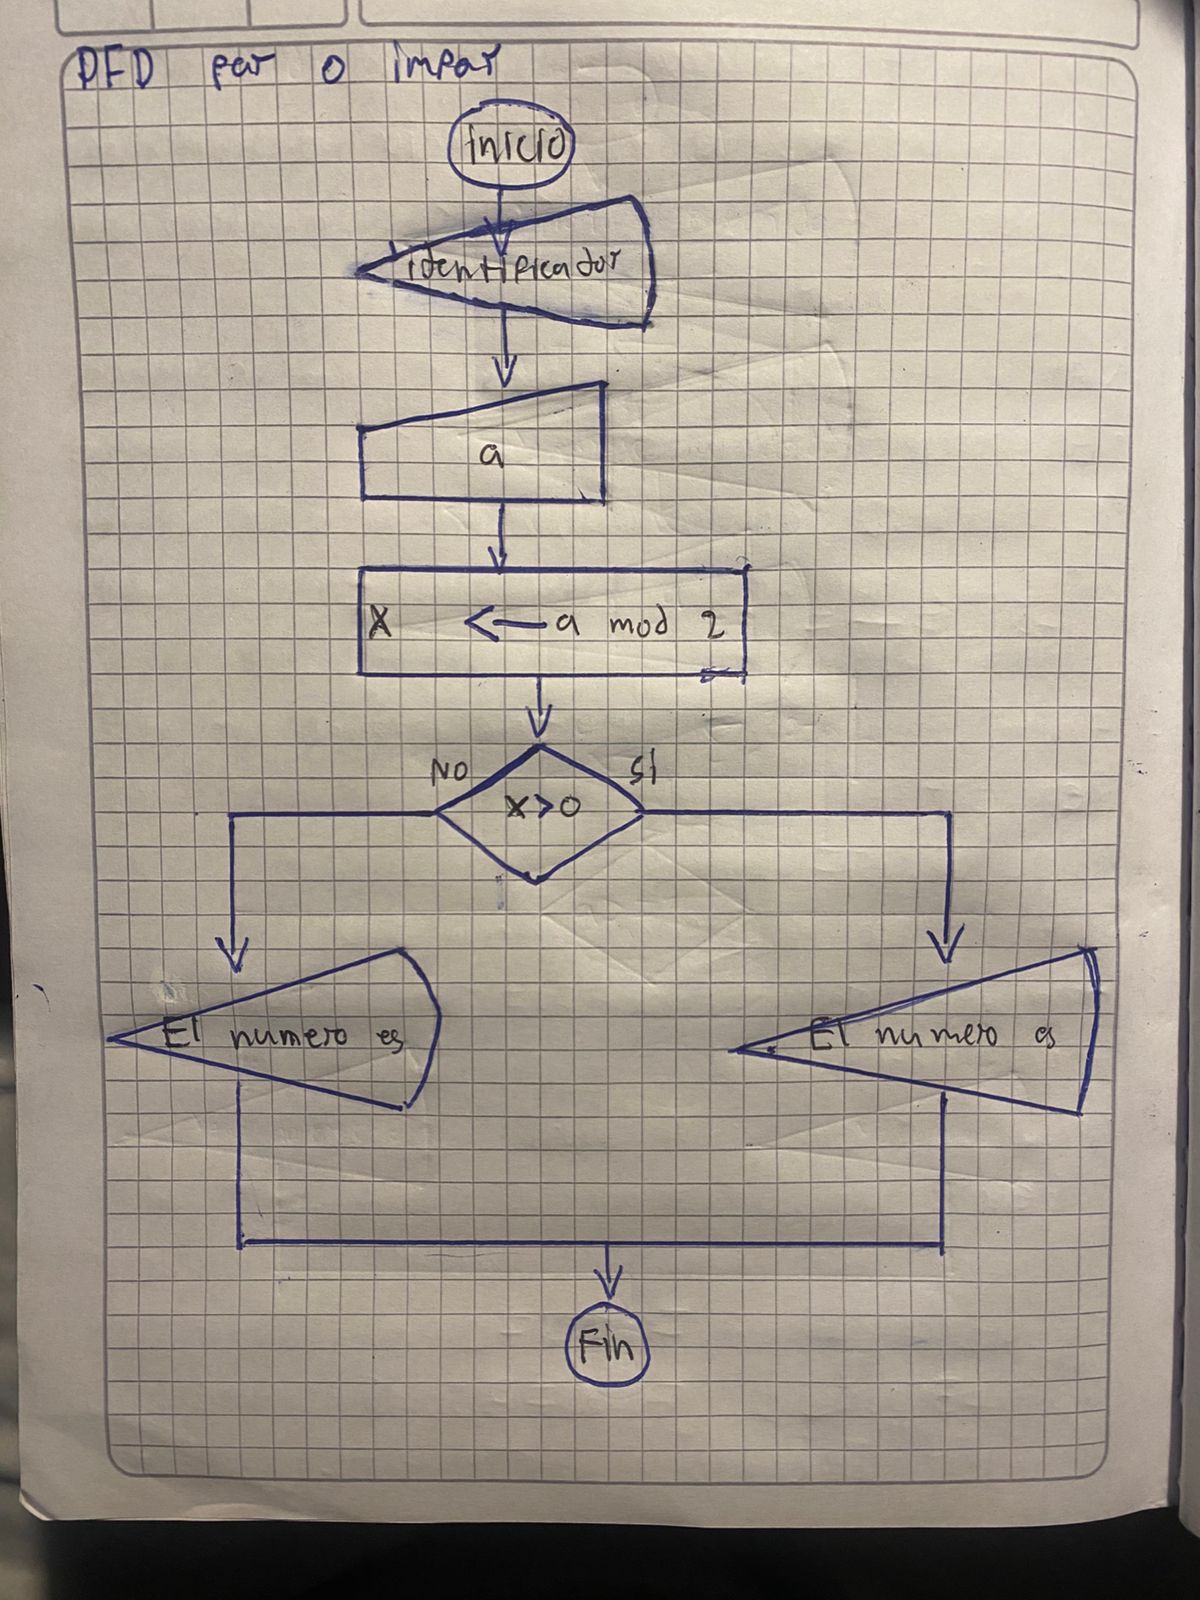 DFD par o impar
inicio
identificador
a
X ← a mod 2
NO
SI
X>0
El numero es
El numero es
Fin